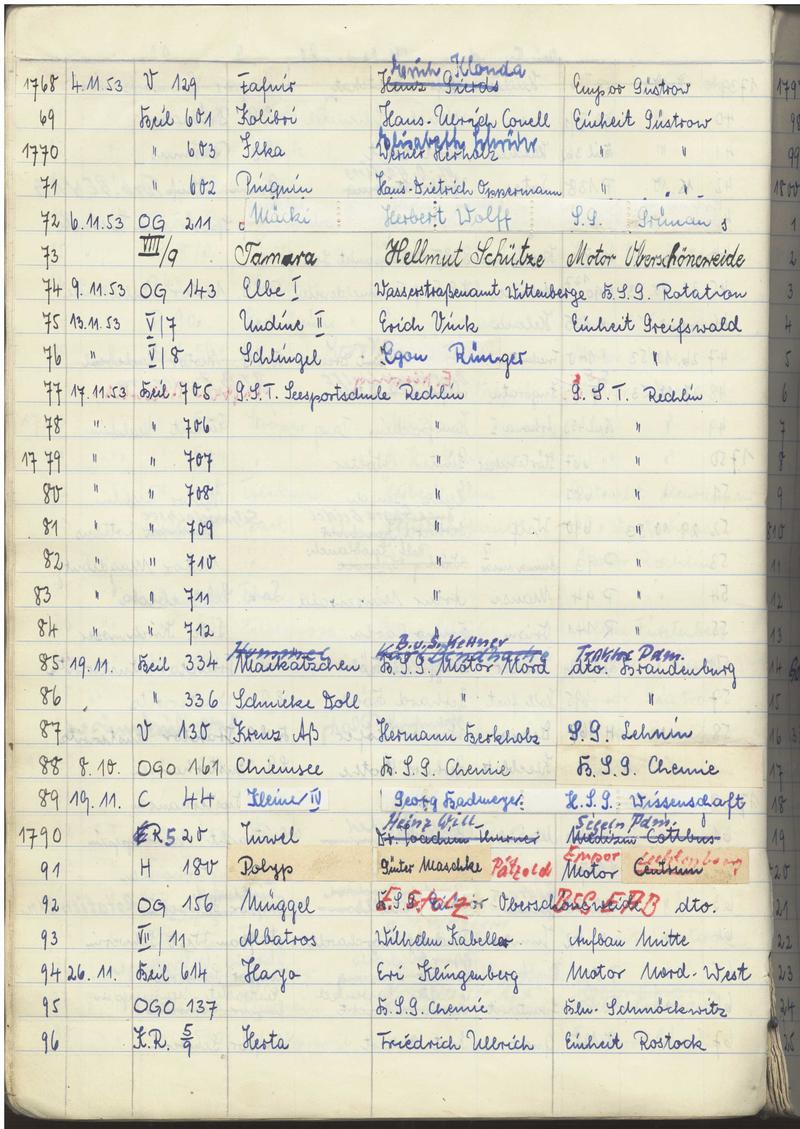 Erich Klonda
1768 4.11.53 V 129 Fafnir Heinz Empor Güstrow
69 Beil 601 Kolibri Hans-Ulrich Conell Einheit Güstrow
Elisabeth
1770 " 603 Ilka Werner Herholz " "
71 " 602 Pinguin Hans-Dietrich Oppermann " "
72 6.11.53 OG 211 Mäcki Herbert Wolff S.G. Grünau s 1
73 VIII/9 Tamara Hellmut Schütze Motor Oberschöneweide 2
74 9.11.53 OG 143 Elbe I Wasserstraßenamt Wittenberge B.S.G. Rotation 3
75 13.11.53 V/7 Undine II Erich Vink Einheit Greifswald 4
76 " V/8 Schlingel Egon Rünger " 5
77 17.11.53 Beil 705 G.S.T. Seesportschule Rechlin G.S.T. Rechlin 6
78 " " 706 " " 7
1779 " " 707 " " 8
80 " " 708 " " 9
81 " " 709 " " 810
82 " " 710 " " 11
83 " " 711 " " 12
84 " " 712 " "
Hummel B.u.S. Kettner Traktor Pdm.
85 19.11. Beil 334 Maikätzchen B.S.G. Motor Nord dto. Brandenburg 14
86 " 336 Schnieke Doll " " 15
87 V 130 Kreuz Aß Hermann Berkholz S.G. Lehnin 16
88 8.10. OGO 161 Chiemsee B.S.G. Chemie B.S.G. Chemie 17
89 19.11. C 44 Kleiner IV Georg Badmeyer H.S.G. Wissenschaft 18
Heinz Will Segeln Pdm.
1790 R 520 Juwel Dr. Joachim Thurner Medizin Cottbus 19
Empor Lichtenberg
91 H 180 Polyp Günter Maschke Pätzold Motor Centrum 20
92 OG 156 Müggel B.S.G. Oberschöneweide BSG EAB dto. 21
93 VII/11 Albatros Wilhelm Kabeller Aufbau Mitte 22
94 26.11. Beil 614 Hayo Eri Klingenberg Motor Nord-West 23
95 OGO 137 B.S.G. Chemie Bln. Schmöckwitz 24
96 K.R. 5/9 Herta Friedrich Ullrich Einheit Rostock 25